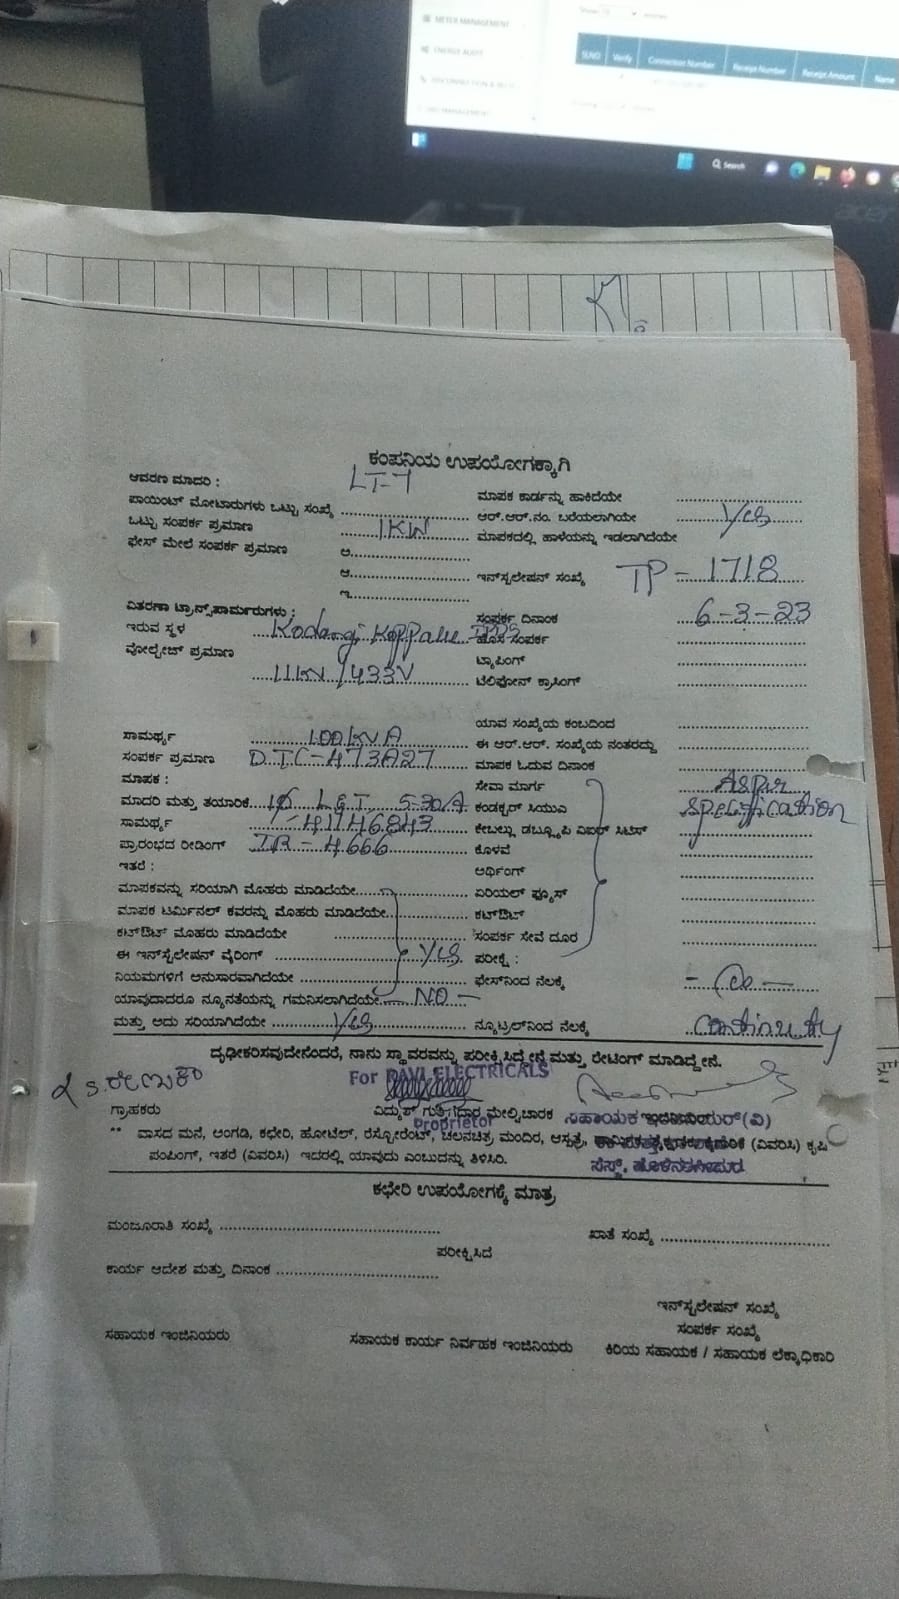 METER MANAGEMENT
ENERGY AUDIT
SLNO Verify Connection Number Receipt Number Receipt Amount Name
Search
acer
ಕಂಪನಿಯ ಉಪಯೋಗಕ್ಕಾಗಿ
ಆವರಣ ಮಾದರಿ : LT-7
ಮಾಪಕ ಕಾರ್ಡನ್ನು ಹಾಕಿದೆಯೇ
ಪಾಯಿಂಟ್ ಮೋಟಾರುಗಳು ಒಟ್ಟು ಸಂಖ್ಯೆ
ಆರ್.ಆರ್.ನಂ. ಬರೆಯಲಾಗಿಯೇ Yes
ಒಟ್ಟು ಸಂಪರ್ಕ ಪ್ರಮಾಣ 1KW
ಮಾಪಕದಲ್ಲಿ ಹಾಳೆಯನ್ನು ಇಡಲಾಗಿದೆಯೇ
ಫೇಸ್ ಮೇಲೆ ಸಂಪರ್ಕ ಪ್ರಮಾಣ ಅ
ಆ
ಇನ್‌ಸ್ಟಲೇಷನ್ ಸಂಖ್ಯೆ TP-1718
ಇ
ವಿತರಣಾ ಟ್ರಾನ್ಸ್‌ಫಾರ್ಮರುಗಳು :
ಸಂಪರ್ಕ ದಿನಾಂಕ 6-3-23
ಇರುವ ಸ್ಥಳ Kodangi Koppalu
ಹೊಸ ಸಂಪರ್ಕ
ವೋಲ್ಟೇಜ್ ಪ್ರಮಾಣ
ಟ್ಯಾಪಿಂಗ್
11KV/433V
ಟೆಲಿಫೋನ್ ಕ್ರಾಸಿಂಗ್
ಯಾವ ಸಂಖ್ಯೆಯ ಕಂಬದಿಂದ
ಸಾಮರ್ಥ್ಯ 100KVA
ಈ ಆರ್.ಆರ್. ಸಂಖ್ಯೆಯ ನಂತರದ್ದು
ಸಂಪರ್ಕ ಪ್ರಮಾಣ DTC-473A27
ಮಾಪಕ ಓದುವ ದಿನಾಂಕ
ಮಾಪಕ :
ಸೇವಾ ಮಾರ್ಗ
ಮಾದರಿ ಮತ್ತು ತಯಾರಿಕೆ 1Ø L&T 5-30A
ಕಂಡಕ್ಟರ್ ಸಿಯುಎ specification
ಸಾಮರ್ಥ್ಯ -41746843
ಪ್ರಾರಂಭದ ರೀಡಿಂಗ್ IR-4.666
ಕೊಳವೆ
ಇತರೆ :
ಅರ್ಥಿಂಗ್
ಮಾಪಕವನ್ನು ಸರಿಯಾಗಿ ಮೊಹರು ಮಾಡಿದೆಯೇ
ಏರಿಯಲ್ ಫ್ಯೂಸ್
ಮಾಪಕ ಟರ್ಮಿನಲ್ ಕವರನ್ನು ಮೊಹರು ಮಾಡಿದೆಯೇ
ಕಟ್ಔಟ್
ಕಟ್ಔಟ್ ಮೊಹರು ಮಾಡಿದೆಯೇ
ಸಂಪರ್ಕ ಸೇವೆ ದೂರ
ಈ ಇನ್‌ಸ್ಟಲೇಷನ್ ವೈರಿಂಗ್ Yes
ಪರೀಕ್ಷೆ :
ನಿಯಮಗಳಿಗೆ ಅನುಸಾರವಾಗಿದೆಯೇ
ಫೇಸ್‌ನಿಂದ ನೆಲಕ್ಕೆ
ಯಾವುದಾದರೂ ನ್ಯೂನತೆಯನ್ನು ಗಮನಿಸಲಾಗಿದೆಯೇ — NO —
ಮತ್ತು ಅದು ಸರಿಯಾಗಿದೆಯೇ Yes
ನ್ಯೂಟ್ರಲ್‌ನಿಂದ ನೆಲಕ್ಕೆ Continuty
ದೃಢೀಕರಿಸವುದೇನೆಂದರೆ, ನಾನು ಸ್ಥಾವರವನ್ನು ಪರೀಕ್ಷಿಸಿದ್ದೇನೆ ಮತ್ತು ರೇಟಿಂಗ್ ಮಾಡಿದ್ದೇನೆ.
For RAVI ELECTRICALS
ಗ್ರಾಹಕರು
ವಿದ್ಯುತ್ ಗುತ್ತಿಗೆದಾರ ಮೇಲ್ವಿಚಾರಕ
Proprietor
ಸಹಾಯಕ ಇಂಜಿನಿಯರ್(ವಿ)
** ವಾಸದ ಮನೆ, ಅಂಗಡಿ, ಕಛೇರಿ, ಹೋಟೆಲ್, ರೆಸ್ಟೋರೆಂಟ್, ಚಲನಚಿತ್ರ ಮಂದಿರ, ಆಸ್ಪತ್ರೆ, (ವಿವರಿಸಿ) ಕೃಷಿ
ಪಂಪಿಂಗ್, ಇತರೆ (ವಿವರಿಸಿ) ಇದರಲ್ಲಿ ಯಾವುದು ಎಂಬುದನ್ನು ತಿಳಿಸಿರಿ.
ಕಛೇರಿ ಉಪಯೋಗಕ್ಕೆ ಮಾತ್ರ
ಮಂಜೂರಾತಿ ಸಂಖ್ಯೆ
ಖಾತೆ ಸಂಖ್ಯೆ
ಪರೀಕ್ಷಿಸಿದೆ
ಕಾರ್ಯ ಆದೇಶ ಮತ್ತು ದಿನಾಂಕ
ಇನ್‌ಸ್ಟಲೇಷನ್ ಸಂಖ್ಯೆ
ಸಂಪರ್ಕ ಸಂಖ್ಯೆ
ಸಹಾಯಕ ಇಂಜಿನಿಯರು
ಸಹಾಯಕ ಕಾರ್ಯ ನಿರ್ವಾಹಕ ಇಂಜಿನಿಯರು
ಕಿರಿಯ ಸಹಾಯಕ / ಸಹಾಯಕ ಲೆಕ್ಕಾಧಿಕಾರಿ